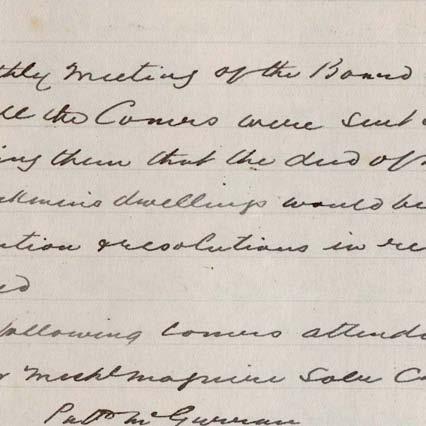 thly Meeting of the Board
ll the Comers were sent
ing them that the deed of
kmens dwellings would be
ution & resolutions in re
ed
following Comers attend
Michl Maguire Solr C
Patk McGurran